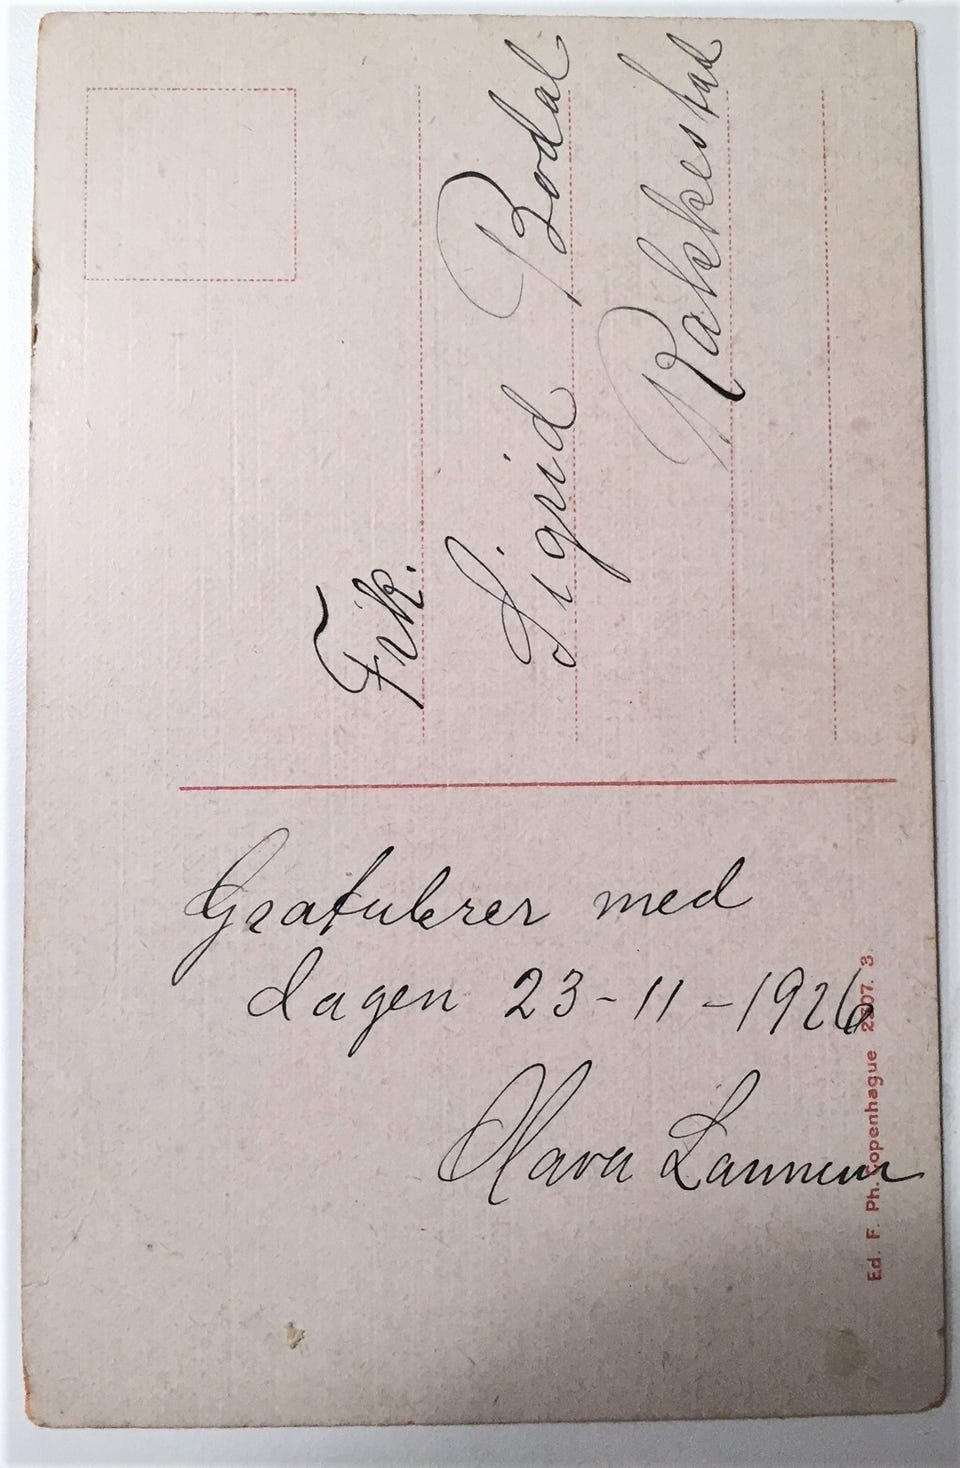 Frk.
Sigrid Bodal
Rakkestad
Gratulerer med
dagen 23-11-1926
Olava Lannem
Ed. F. Ph. Copenhague 2507. 3